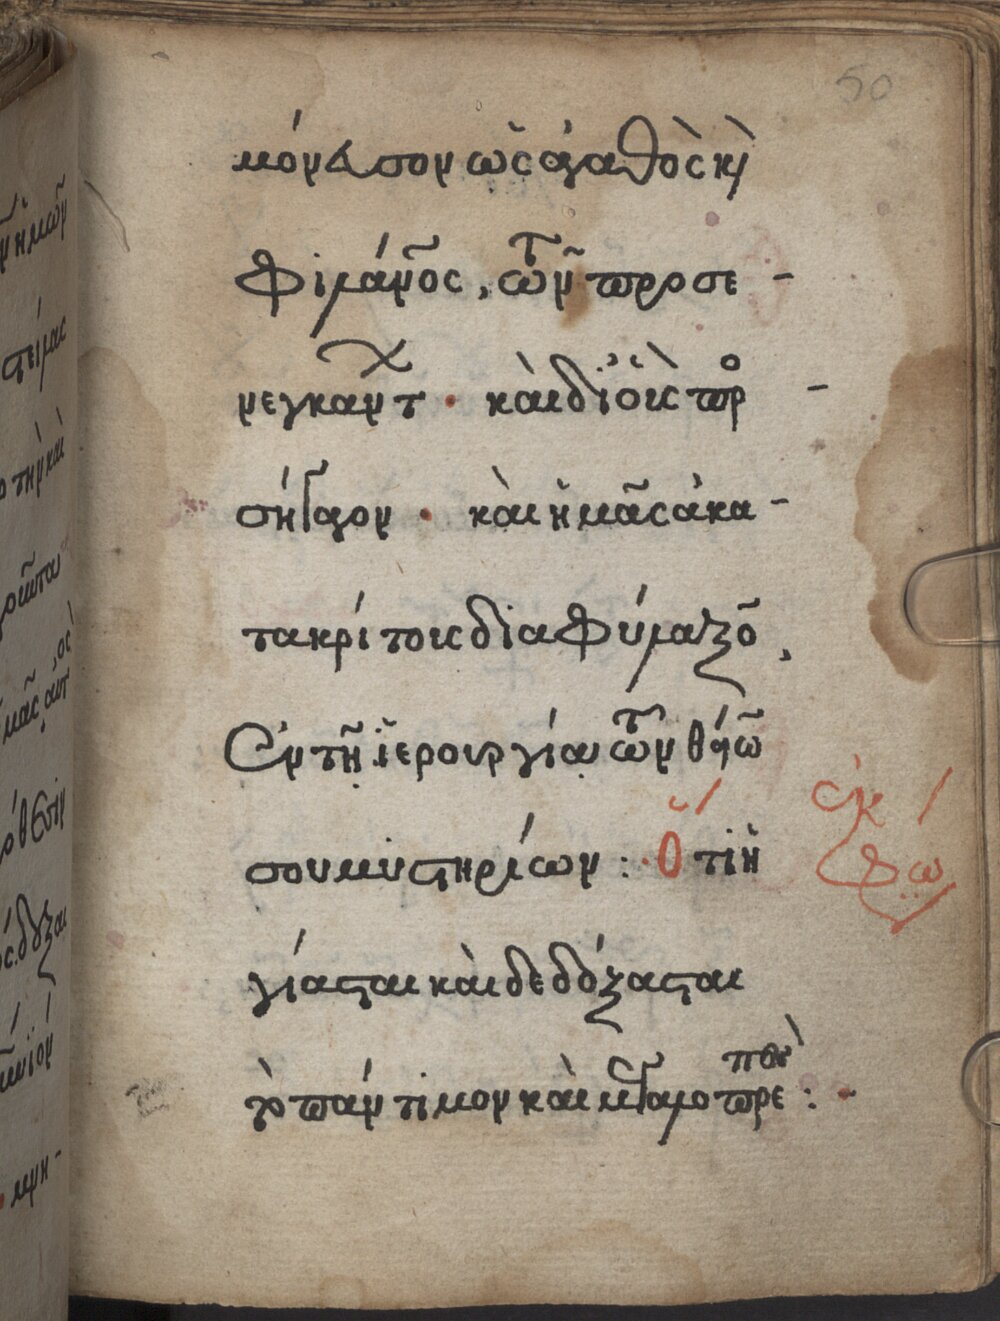 50
μόνευσον ὡς ἀγαθὸς κὶ
φιλάν̃ος, τῶν προσε-
νεγκάντ · καὶ δι' οὓς πρ-
σήγαγον · καὶ ἡμᾶς ἀκα-
τακρίτους διαφύλαξο̃,
Ἐν τῇ ἱερουργία τῶν θείω̃
σου μυστηρίων : · Ὅτι ἡ
ἐκφώ
γίασται καὶ δεδόξασται
τὸ πάντιμον καὶ μεγαλοπρεπὲ :·